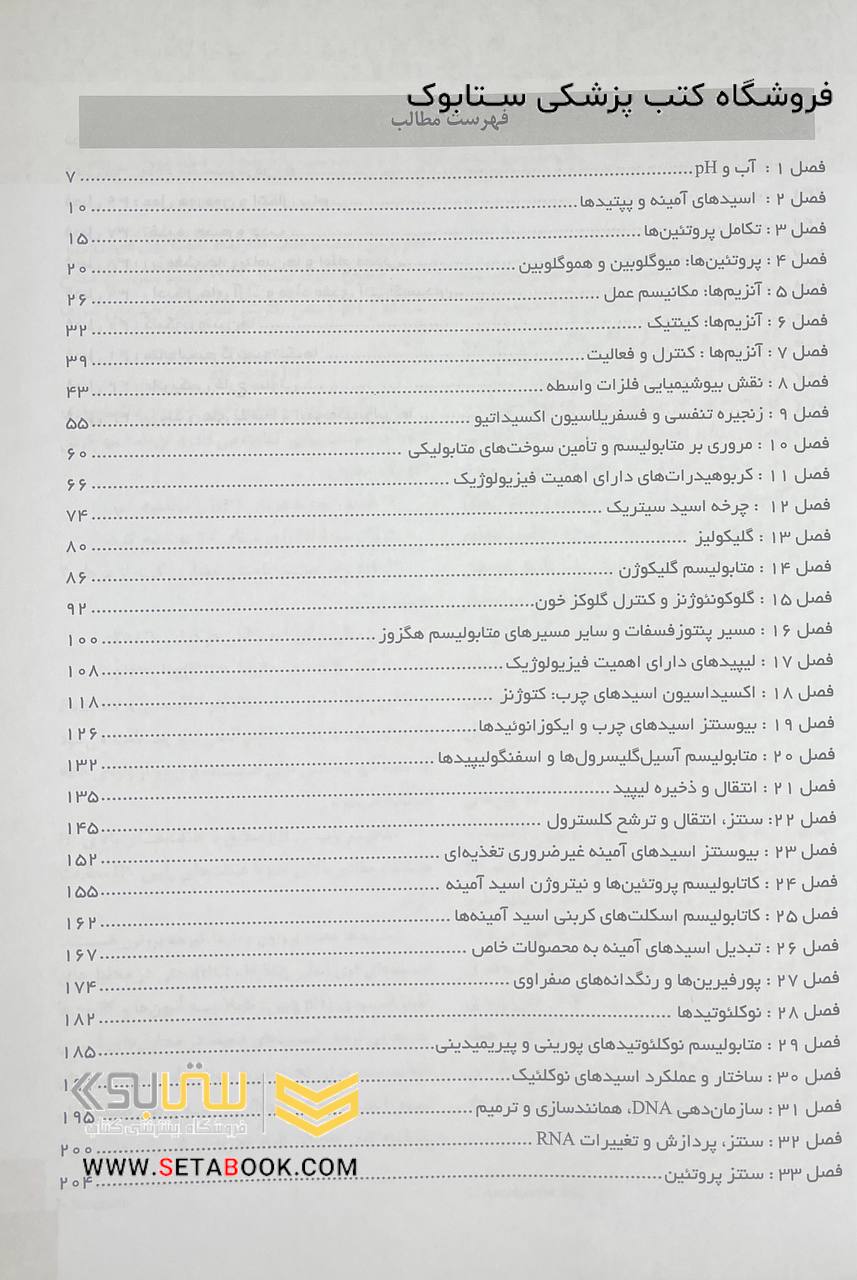 فروشگاه کتب پزشکی ستابوک
فهرست مطالب
فصل ۱ : آب و pH ........ ۷
فصل ۲ : اسیدهای آمینه و پپتیدها ........ ۱۰
فصل ۳ : تکامل پروتئین‌ها ........ ۱۵
فصل ۴ : پروتئین‌ها: میوگلوبین و هموگلوبین ........ ۲۰
فصل ۵ : آنزیم‌ها: مکانیسم عمل ........ ۲۶
فصل ۶ : آنزیم‌ها: کینتیک ........ ۳۲
فصل ۷ : آنزیم‌ها : کنترل و فعالیت ........ ۳۹
فصل ۸ : نقش بیوشیمیایی فلزات واسطه ........ ۴۳
فصل ۹ : زنجیره تنفسی و فسفریلاسیون اکسیداتیو ........ ۵۵
فصل ۱۰ : مروری بر متابولیسم و تأمین سوخت‌های متابولیکی ........ ۶۰
فصل ۱۱ : کربوهیدرات‌های دارای اهمیت فیزیولوژیک ........ ۶۶
فصل ۱۲ : چرخه اسید سیتریک ........ ۷۴
فصل ۱۳ : گلیکولیز ........ ۸۰
فصل ۱۴ : متابولیسم گلیکوژن ........ ۸۶
فصل ۱۵ : گلوکونئوژنز و کنترل گلوکز خون ........ ۹۲
فصل ۱۶ : مسیر پنتوزفسفات و سایر مسیرهای متابولیسم هگزوز ........ ۱۰۰
فصل ۱۷ : لیپیدهای دارای اهمیت فیزیولوژیک ........ ۱۰۸
فصل ۱۸ : اکسیداسیون اسیدهای چرب: کتوژنز ........ ۱۱۸
فصل ۱۹ : بیوسنتز اسیدهای چرب و ایکوزانوئیدها ........ ۱۲۶
فصل ۲۰ : متابولیسم آسیل‌گلیسرول‌ها و اسفنگولیپیدها ........ ۱۳۲
فصل ۲۱ : انتقال و ذخیره لیپید ........ ۱۳۵
فصل ۲۲: سنتز، انتقال و ترشح کلسترول ........ ۱۴۵
فصل ۲۳ : بیوسنتز اسیدهای آمینه غیرضروری تغذیه‌ای ........ ۱۵۲
فصل ۲۴ : کاتابولیسم پروتئین‌ها و نیتروژن اسید آمینه ........ ۱۵۵
فصل ۲۵ : کاتابولیسم اسکلت‌های کربنی اسید آمینه‌ها ........ ۱۶۲
فصل ۲۶ : تبدیل اسیدهای آمینه به محصولات خاص ........ ۱۶۷
فصل ۲۷ : پورفیرین‌ها و رنگدانه‌های صفراوی ........ ۱۷۴
فصل ۲۸ : نوکلئوتیدها ........ ۱۸۲
فصل ۲۹ : متابولیسم نوکلئوتیدهای پورینی و پیریمیدینی ........ ۱۸۵
فصل ۳۰ : ساختار و عملکرد اسیدهای نوکلئیک ........
فصل ۳۱ : سازمان‌دهی DNA، همانندسازی و ترمیم ........ ۱۹۵
فصل ۳۲ : سنتز، پردازش و تغییرات RNA ........ ۲۰۰
فصل ۳۳ : سنتز پروتئین ........ ۲۰۴
ستابوک
فروشگاه اینترنتی کتاب
WWW.SETABOOK.COM